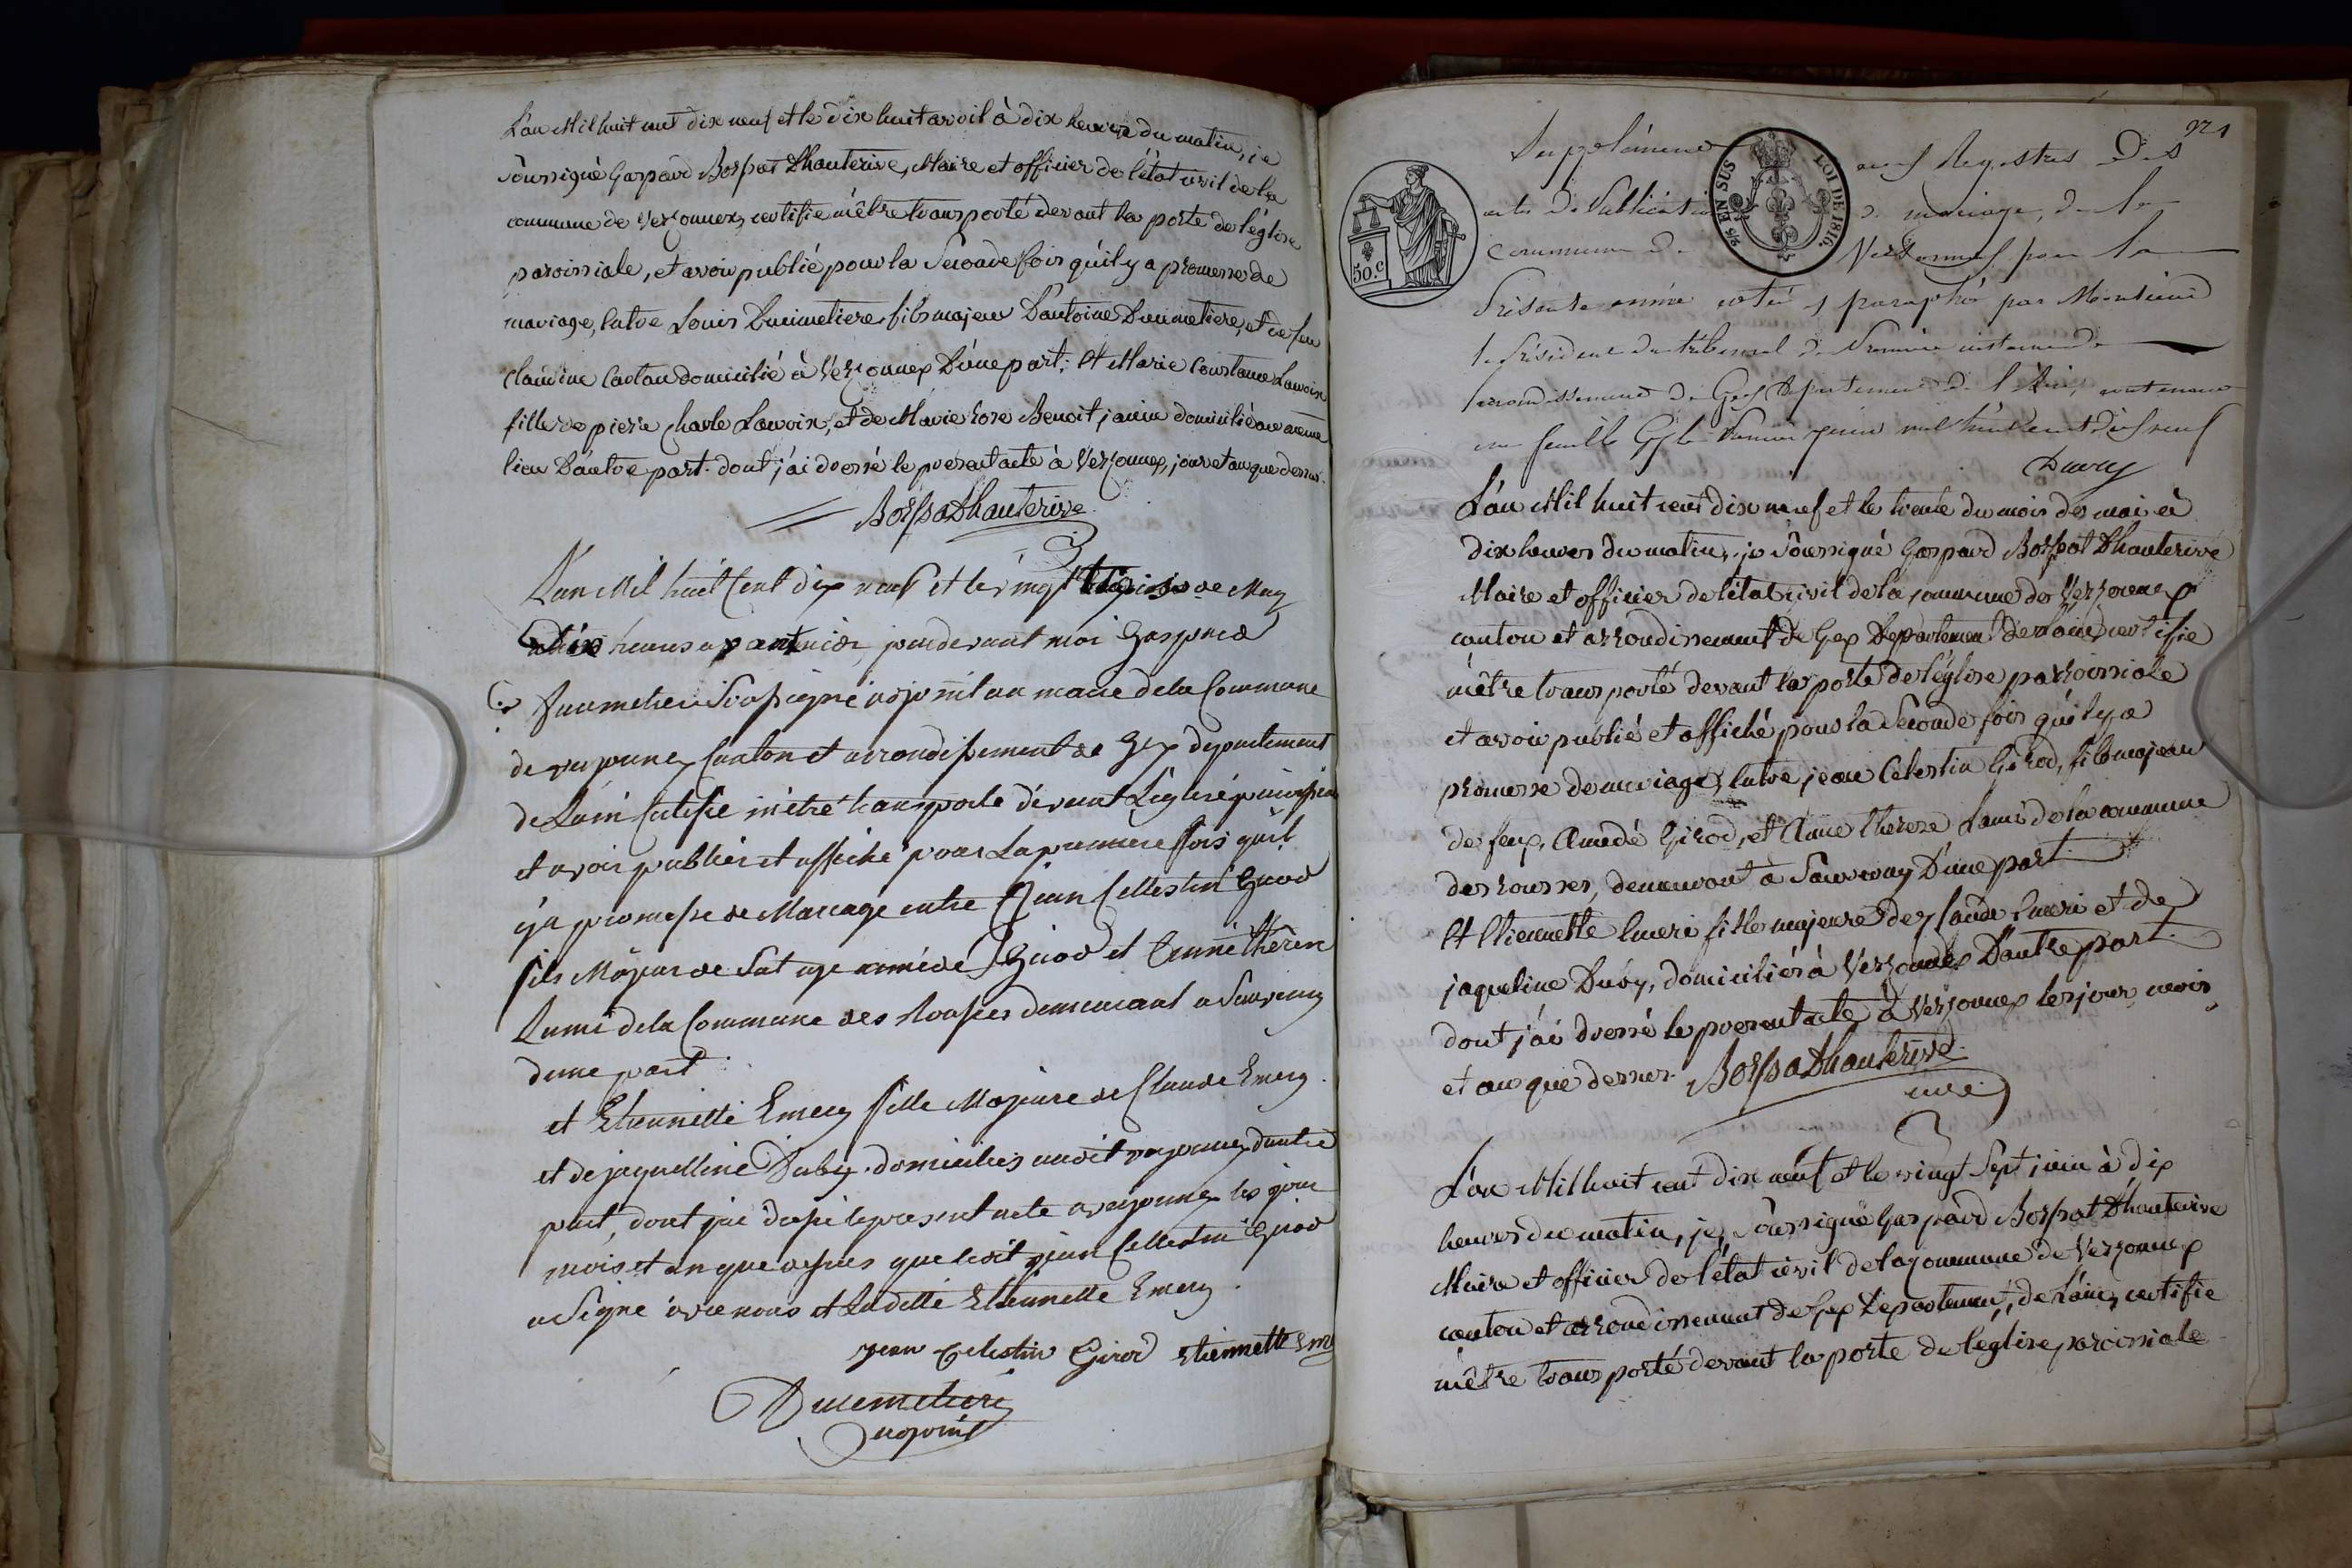 L'an Mil huit cent dix neuf et le dix huit avril à dix heures du matin, je
soussigné Gaspard Bossat Dhauterive, Maire et officier de l'état civil de la
commune de Versonnex, certifie mêtre transporté devant la porte de l'église
paroissiale, et avoir publié pour la Seconde fois qu'il y a promesse de
mariage, entre Louis Ducimetiere fils majeur D'antoine Ducimetiere, et de feu
Claudine Caotan domicilié à Versonnex D'une part; Et Marie Constance Lavoix
fille de pierre Charle Lavoix, et de Marie Rose Benoit janin domicilié au même
lieu D'autre part. dont j'ai dressé le présent acte à Versonnex, jour et an que dessus.
Bossat Dhauterive
L'an Mil huit Cent dix neuf et le vingt trois de May
a dix heures avant midi, pardevant moi Gaspard
Ducimetiere Soussigné adjoint au maire de la Commune
de versonnex Canton et arrondissement de Gex departement
de L'ain Certifie m'être transporté dévant L'eglise paroissial
et avoir publiér et affiché pour La premiere fois qu'il
y a promesse de Mariage entre Jean Cellestin Girod
fils Majeur de amédé Girod et Anne thérèse
Lami de la Commune des Rousses demeurant a Sauverny
dune part
et Etiennette Emery fille Majeure de Claude Emery
et de jaquelline Duby domiciliés audit versonnex dautre
part, dont jai dressé le present acte a versonnex les jour
mois et an que dessus que ledit jean Cellestin Girod
a Signé avec nous et Laditte Etiennette Emery.
jean Celestin Girod Etiennette Em
Ducimetiere
adjoint
221
Supplément aux Registres Des
actes de Publication de mariage, de la
50.c
EN SUS LOI DE 1816.
commune de Versonnex pour la
Présente année coté et paraphé par Monsieur
le Président du tribunal de Première instance de
l'arrondissement de Gex Département de l'Ain, contenant
une feuille Gex le juin mil huit cent dix neuf
L'an Mil huit cent dix neuf et le trente du mois de mai à
dix heures du matin, je soussigné Gaspard Bossat Dhauterive
Maire et officier de l'état civil de la commune de Versonnex
canton et arrondissement de Gex Département de l'ain, certifie
mêtre transporté devant la porte de l'église parroissiale
et avoir publié et affiché pour la Seconde fois qu'il y a
promesse de mariage, entre jean Celestin Girod, fils majeur
de feux, Amedé Girod, et Anne therese Lami de la commune
des rousses, demeurant à Sauverny D'une part
Et Etiennette Emeri fille majeure de Claude Emeri et de
jaqueline Duby, domiciliés à Versonnex D'autre part.
dont j'ai dressé le présent acte à Versonnex les jour mois
et an que dessus. Bossat Dhauterive
L'an Mil huit cent dix neuf et le vingt Sept juin à dix
heures du matin, je, soussigné Gaspard Bossat Dhauterive
Maire et officier de l'état civil de la commune de Versonnex
canton et arrondissement de Gex Departement, de L'ain, certifie
mêtre transporté devant la porte de l'eglise paroissiale